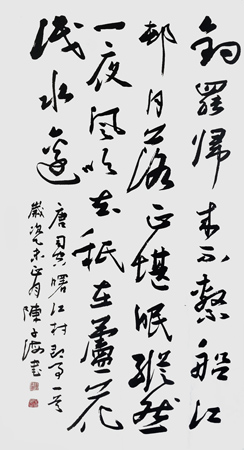 釣罷歸來不繫船江
邨月落正堪眠縱然
一夜風吹去祇在蘆花
淺水邊
唐司空曙江村即事一首
歲次乙未正月陳子海書